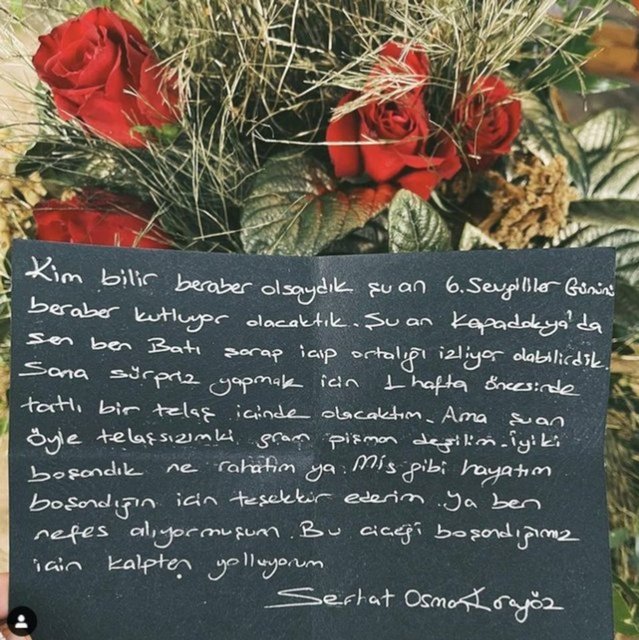 Kim bilir beraber olsaydık şu an 6. Sevgililer Gününü
beraber kutluyor olacaktık. Şu an Kapadokya'da
sen ben Batı şarap içip ortalığı izliyor olabilirdik.
Sana sürpriz yapmak için 1 hafta öncesinde
tatlı bir telaş içinde olacaktım. Ama şu an
öyle telaşsızımki gram pişman değilim. İyiki
boşandık ne rahatım ya. Mis gibi hayatım
boşandığın için teşekkür ederim. Ya ben
nefes alıyormuşum. Bu çiçeği boşandığımız
için kalpten yolluyorum
Serhat Osman Karagöz